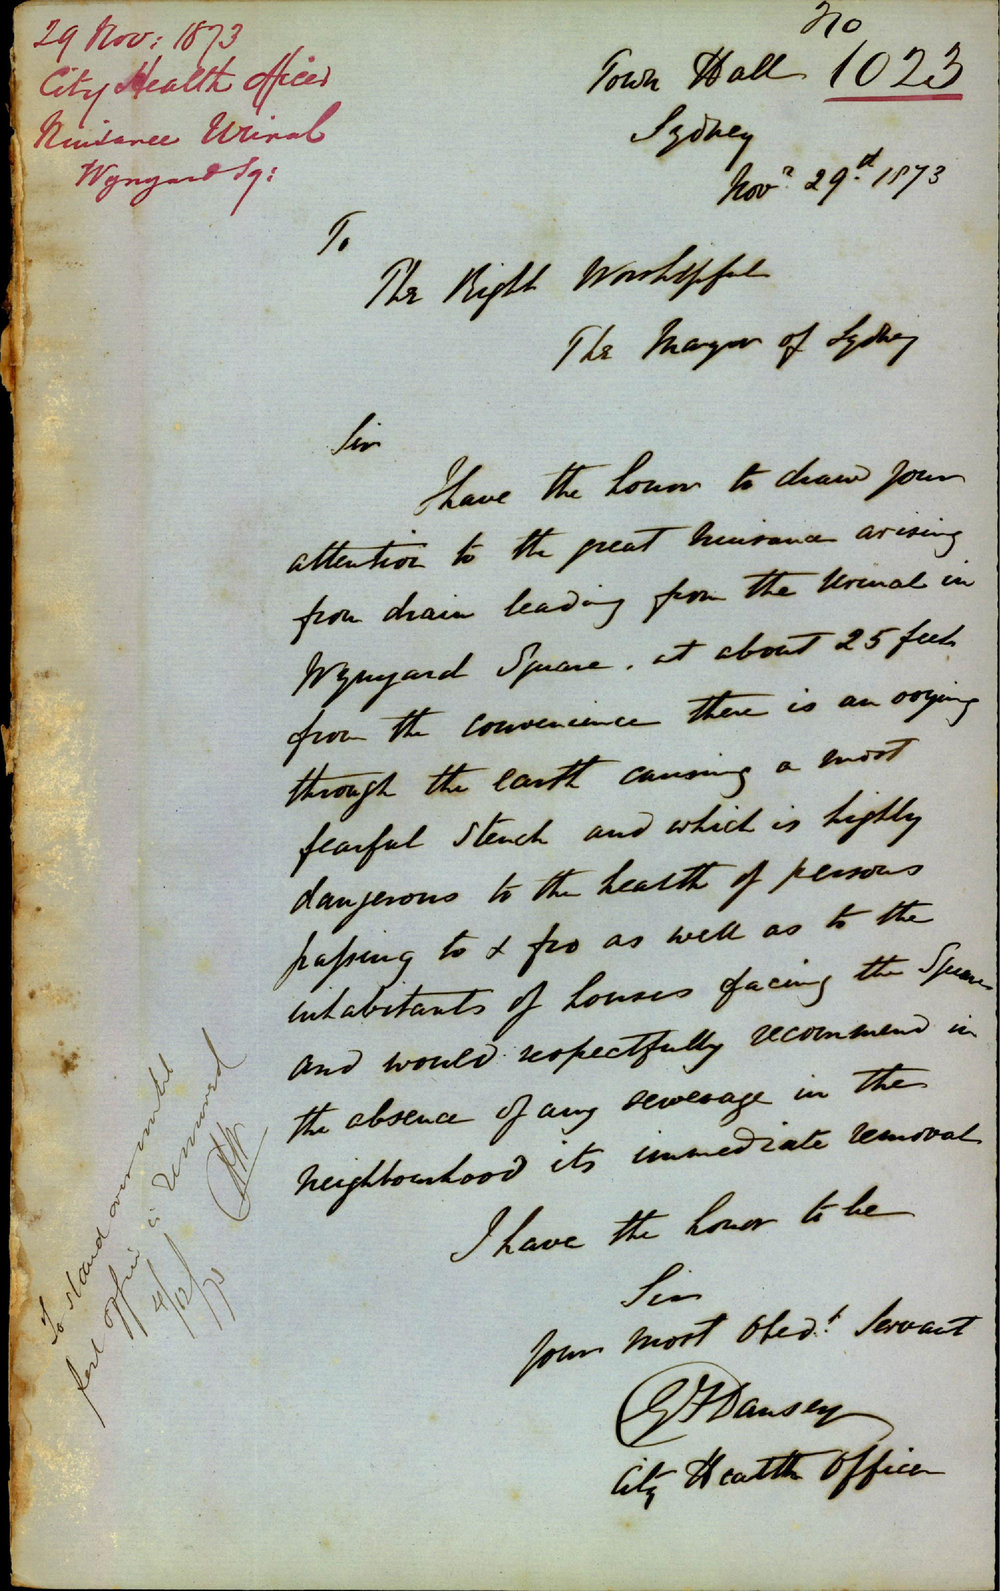 29 Nov: 1873
City Health Officer
Nuisance Urinal
Wynyard Sq:
No
1023
Town Hall
Sydney
Novr 29th 1873
To
The Right Worshipful
The Mayor of Sydney
Sir
I have the honor to draw your
attention to the great nuisance arising
from drain leading from the Urinal in
Wynyard Square. at about 25 feet
from the convenience there is an oozing
through the earth causing a most
fearful stench and which is highly
dangerous to the health of persons
passing to & fro as well as to the
inhabitants of houses facing the Square
and would respectfully recommend in
the absence of any sewerage in the
neighbourhood its immediate removal
I have the honor to be
Sir
Your most Obedt Servant
G F Dansey
City Health Officer
To stand over until
post office is removed
4/12/73